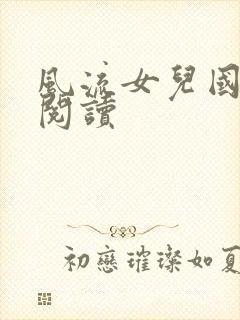 風流女兒國
閱讀
初戀璀璨如夏